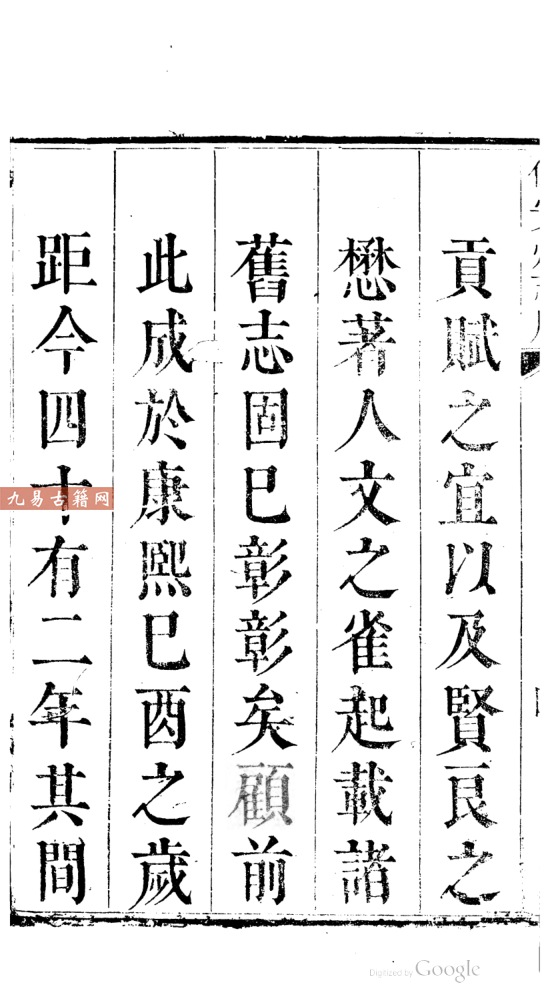 貢賦之宜以及賢良之
懋著人文之雀起載諸
舊志固已彰彰矣顧前
此成於康熙已酉之歲
距今四十有二年其間
九易古籍网
Digitized by Google